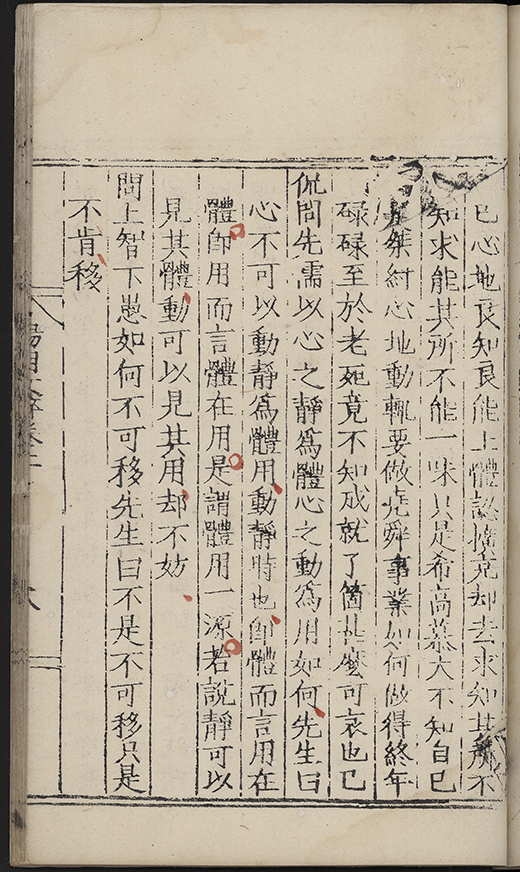 己心地良知良能上體認擴充却去求知其所不
知求能其所不能一味只是希高慕大不知自己
是桀紂心地動輒要做堯舜事業如何做得終年
碌碌至於老死竟不知成就了箇甚麼可哀也已
侃問先儒以心之靜爲體心之動爲用如何先生曰
心不可以動靜爲體用動靜時也卽體而言用在
體卽用而言體在用是謂體用一源若說靜可以
見其體動可以見其用却不妨
問上智下愚如何不可移先生曰不是不可移只是
不肯移